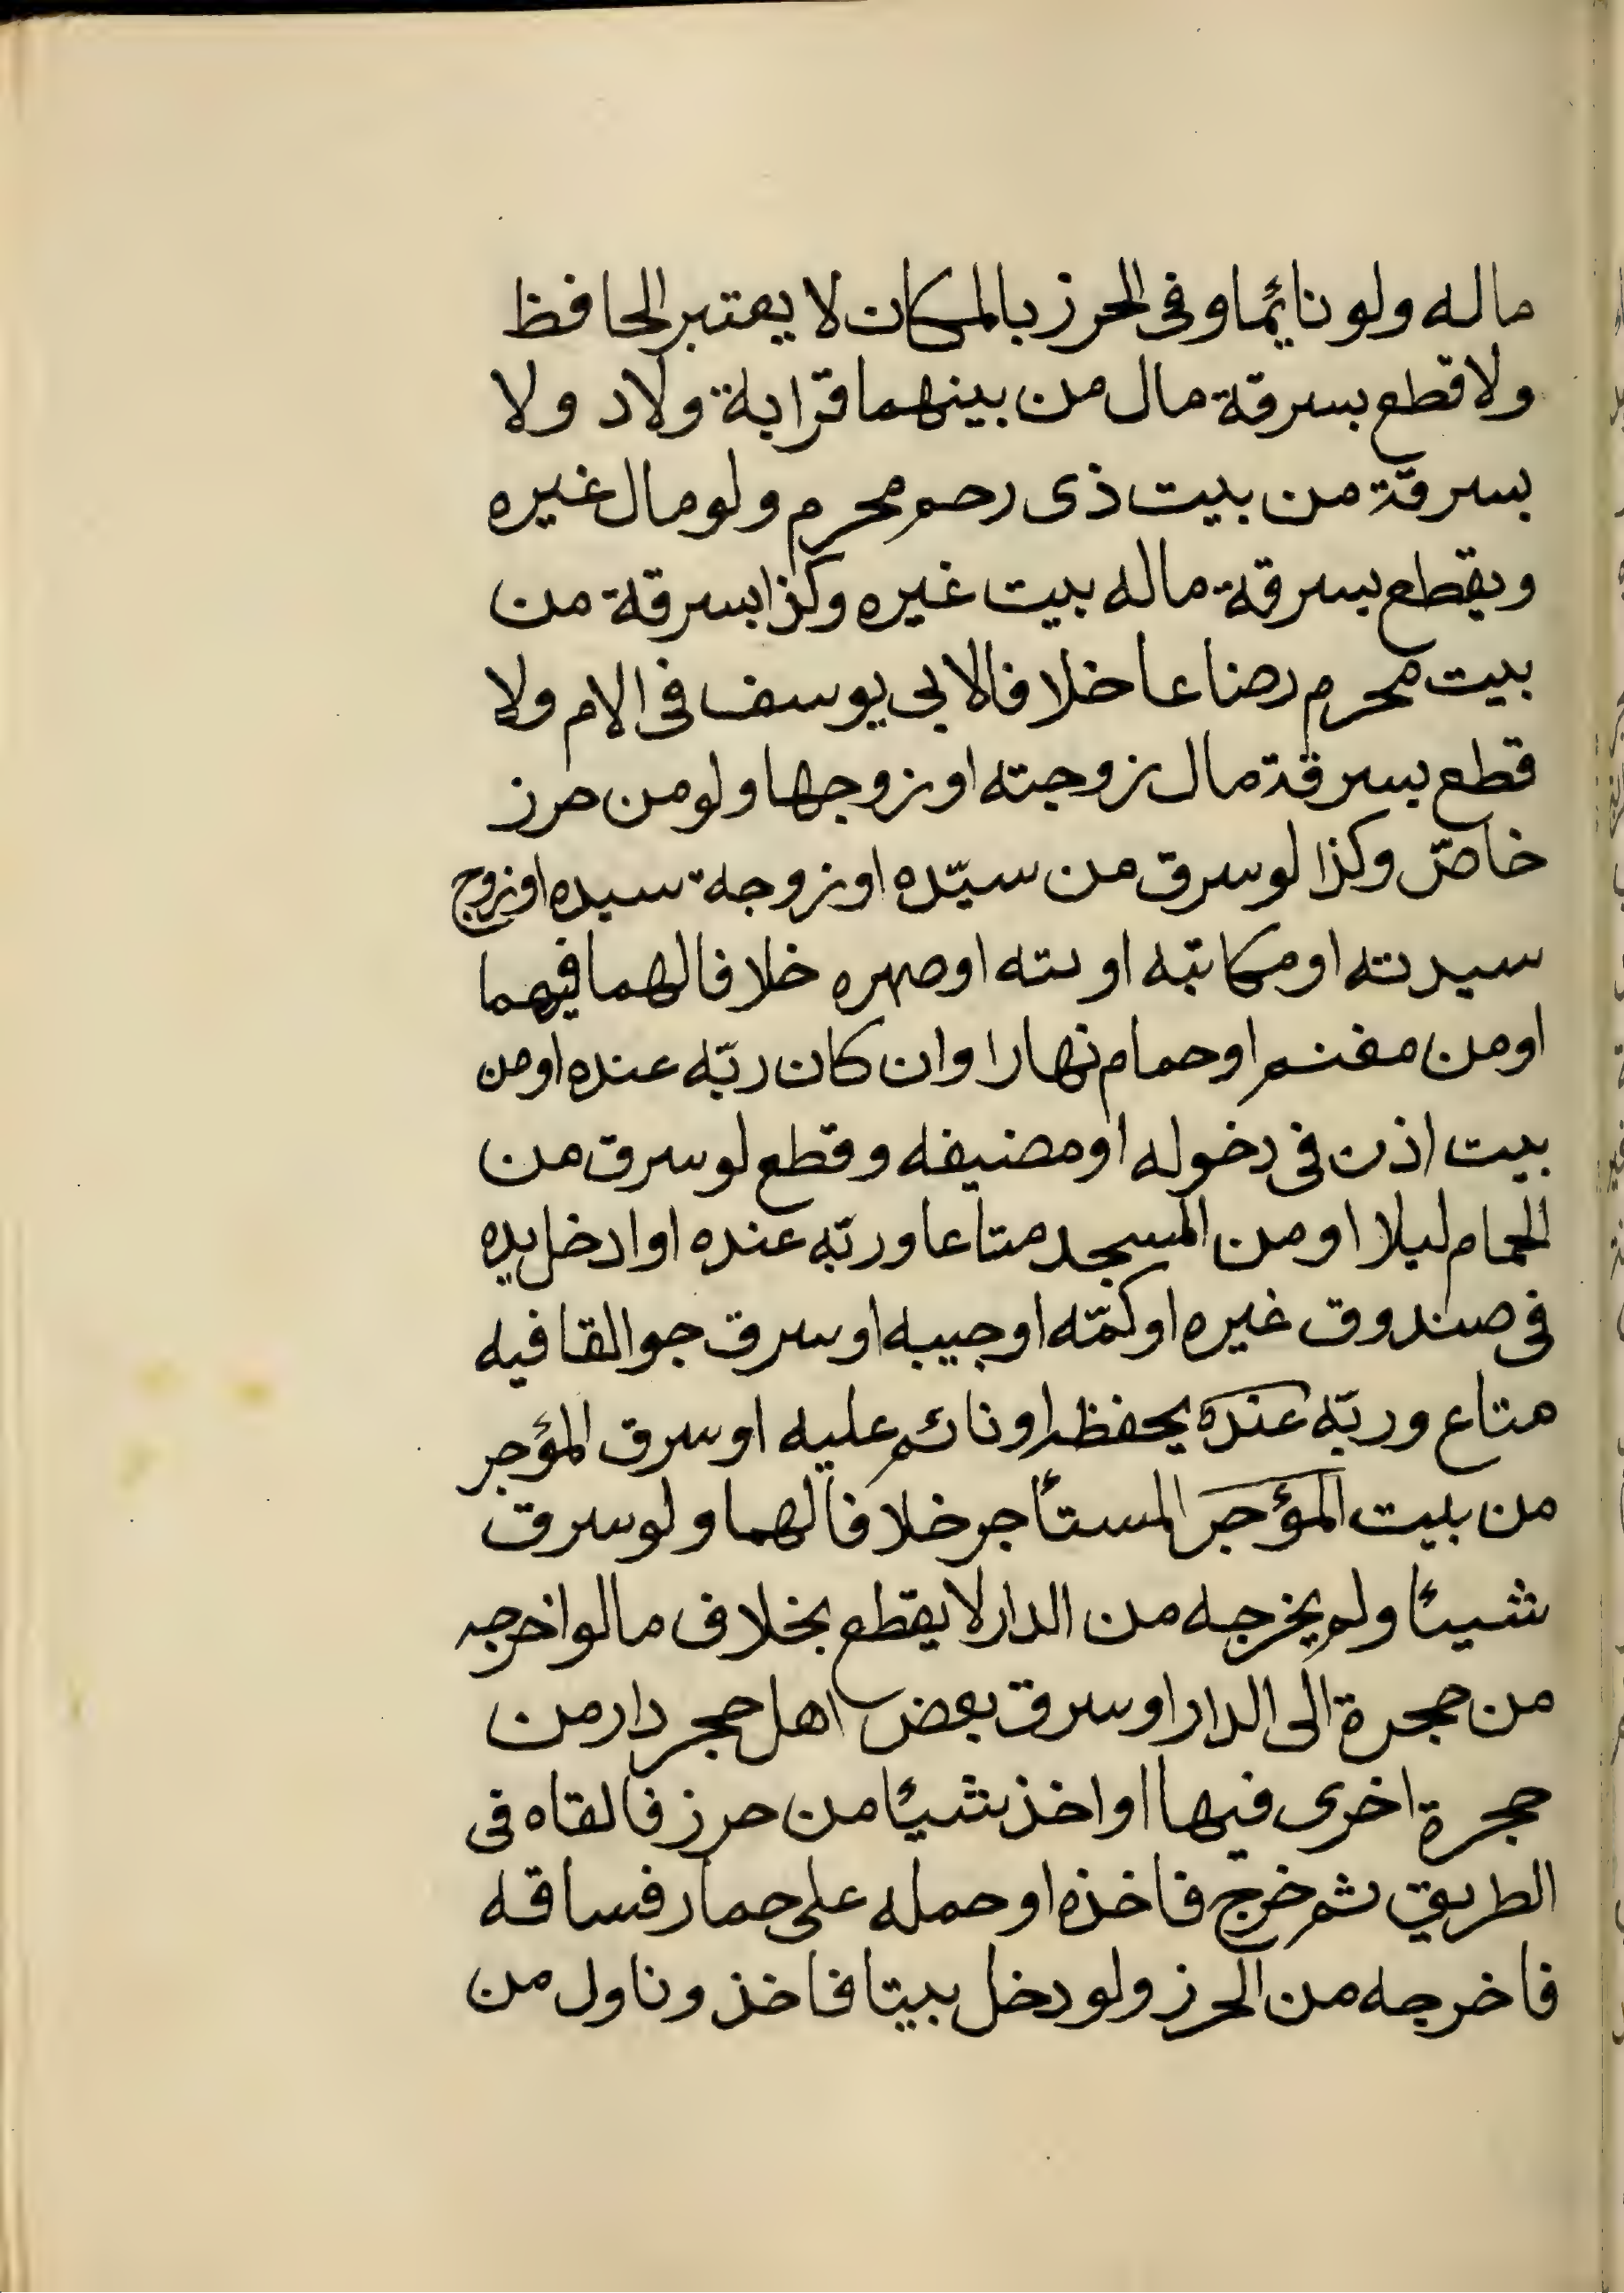 ماله ولو نائما وفى الحرز بالمكان لا يعتبر الحافظ
ولا قطع بسرقة مال من بينهما قرابة ولاد ولا
بسرقة من بيت ذى رحم محرم ولو مال غيره
ويقطع بسرقة ماله بيت غيره وكذا بسرقة من
بيت محرم رضاعا خلافا لابى يوسف فى الام ولا
قطع بسرقة مال زوجته او زوجها ولو من حرز
خاصّ وكذا لو سرق من سيّده او زوجة سيده او زوج
سيدته او مكاتبه او ىىته او صهره خلافا لهما فيهما
او من مغنم او حمام نهارا وان كان ربّه عنده او من
بيت اذن فى دخوله او مضيفه وقطع لو سرق من
الحمام ليلا او من المسجد متاعا وربّه عنده او ادخل يده
فى صندوق غيره او كمّه او جيبه او سرق جوالقا فيه
متاع وربّه عنده يحفظه او نائم عليه او سرق المؤجر
من بيت المؤجَر المستأجر خلافا لهما ولو سرق
شيئا ولم يخرجه من الدار لا يقطع بخلاف ما لو اخرجه
من حجرة الى الدار او سرق بعض اهل حجر دار من
حجرة اخرى فيها او اخذ شيئا من حرز فالقاه فى
الطريق ثم خرج فاخذه او حمله على حمار فساقه
فاخرجه من الحرز ولو دخل بيتا فاخذ وناول من